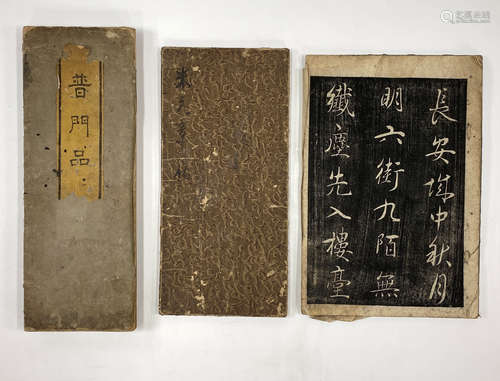 普門品
長安城中秋月
明六街九陌無
纖塵先入樓臺